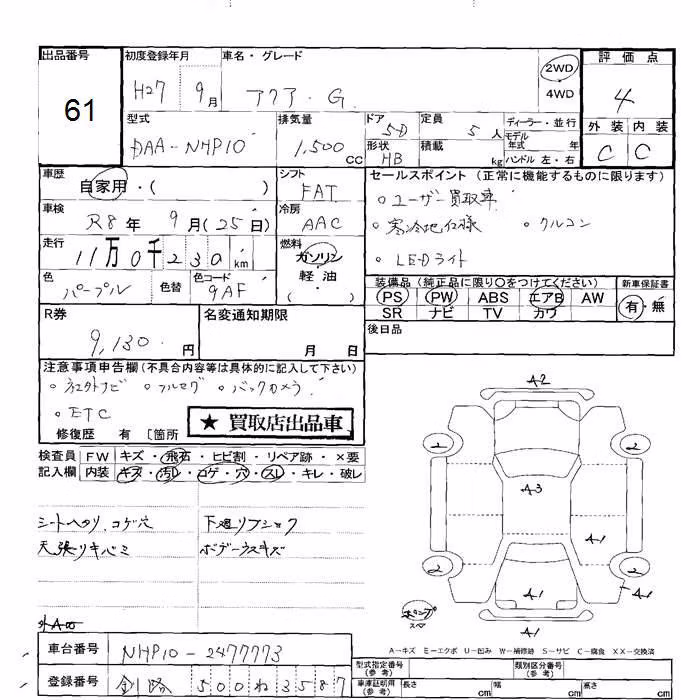 出品番号 61
初度登録年月 H27 9月
車名・グレード アクア・G
2WD
4WD
評価点 4
外装 内装
C C
型式 DAA-NHP10
排気量 1,500 CC
ドア 5D
形状 HB
定員 5人
積載 kg
ディーラー・並行
モデル年式 年
ハンドル 左・右
車歴 自家用・( )
車検 R8年 9月(25日)
走行 11万0千230km
色 パープル 色替 色コード 9AF
シフト FAT
冷房 AAC
燃料 ガソリン
軽・油
( )
セールスポイント (正常に機能するものに限ります)
。ユーザー買取車
。寒冷地仕様 。クルコン
。LEDライト
装備品(純正品に限り○をつけてください)
PS PW ABS エアB AW
SR ナビ TV カワ
新車保証書
有・無
後日品
R券 9,130円
名変通知期限
月 日
注意事項申告欄(不具合内容等は具体的に記入して下さい)
。ネエクトナビ 。フルセグ 。バックカメラ
。ETC
★ 買取店出品車
修復歴 有 〔箇所
検査員記入欄
FW キズ・飛石・ヒビ割・リペア跡・×要
内装 キズ・汚レ・コゲ・穴・スレ・キレ・破レ
シートヘタリ、コゲ穴 下廻リフショク
天張リキバミ ボデーウスキズ
A2
2 2
A3
A1
2 2
A1 A1
スペ
A1
A-キズ E-エクボ U-凹み W-補修跡 S-サビ C-腐食 XX-交換済
車台番号 NHP10-2477773
登録番号 釧路 500ね3587
型式指定番号(参考)
類別区分番号(参考)
車庫証明用(参考) 長さ cm 幅 cm 高さ cm